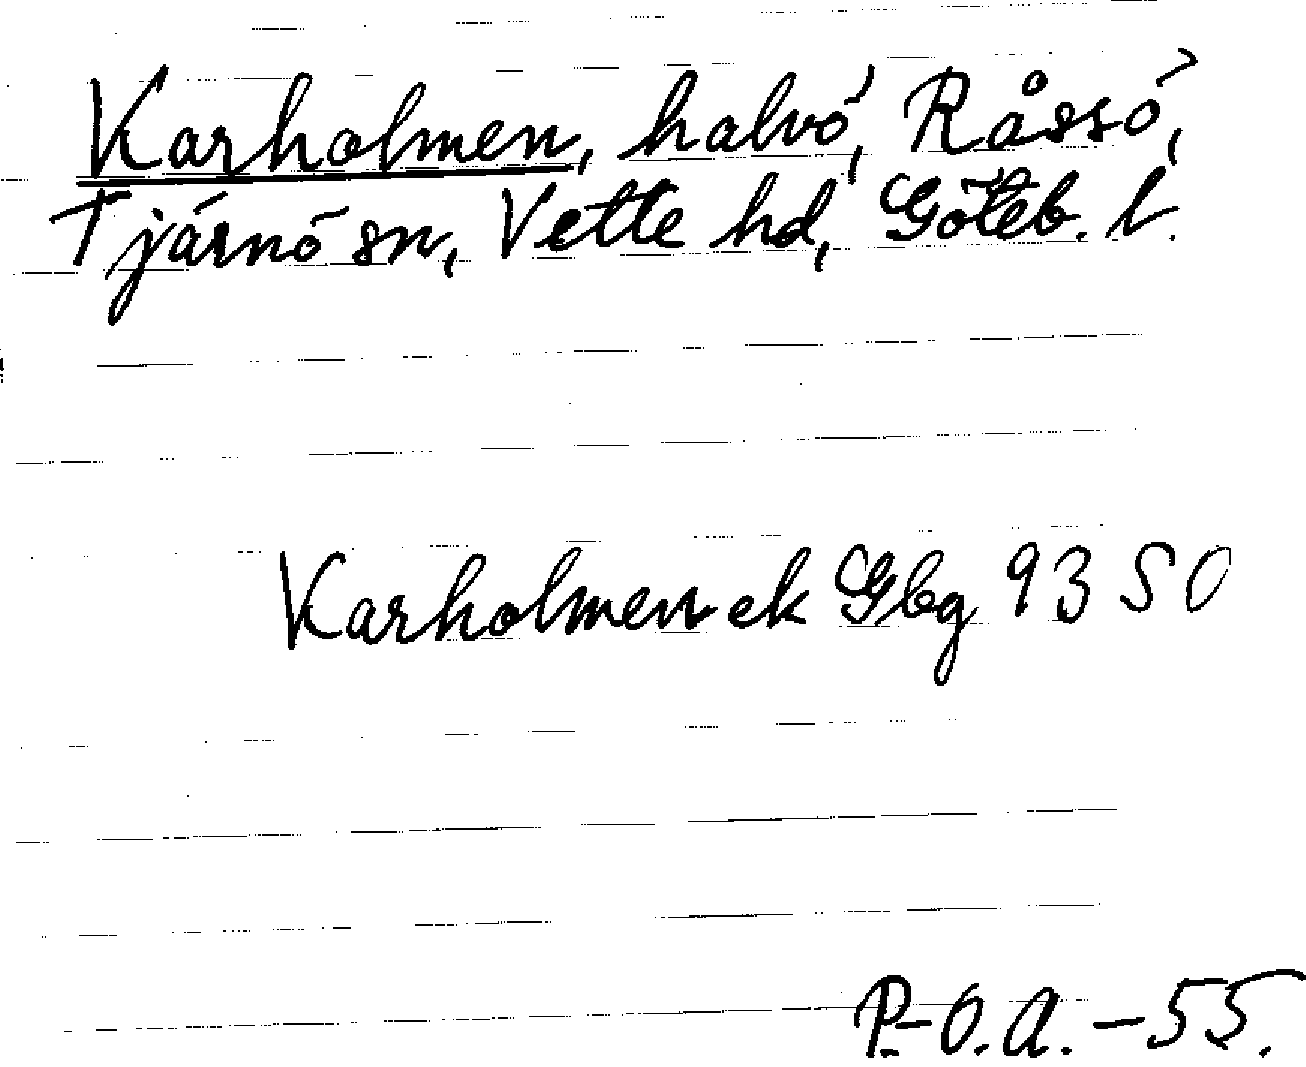 Karholmen, halvö, Råssö,
Tjärnö sn, Vette hd, Göteb. l.
Karholmen ek Gbg 93 SO
P.-O.A. - 55.